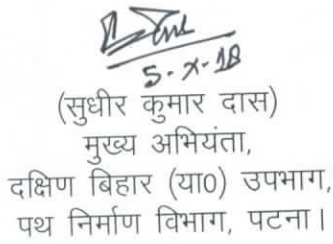 5-X-18
(सुधीर कुमार दास)
मुख्य अभियंता,
दक्षिण बिहार (या0) उपभाग,
पथ निर्माण विभाग, पटना।